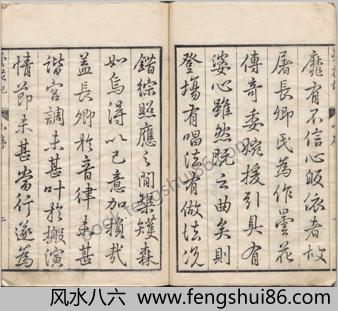 靡有不信心皈依者故
屠長卿氏為作曇花
傳奇委婉援引具有
婆心雖然既云曲矣則
登場有唱法有做法況
錯綜照應之間榘矱森
如烏得以己意加損哉
蓋長卿於音律未甚
諧宮調未甚叶於搬演
情節未甚當行遂為
fengshui86.com
风水八六 www.fengshui86.com